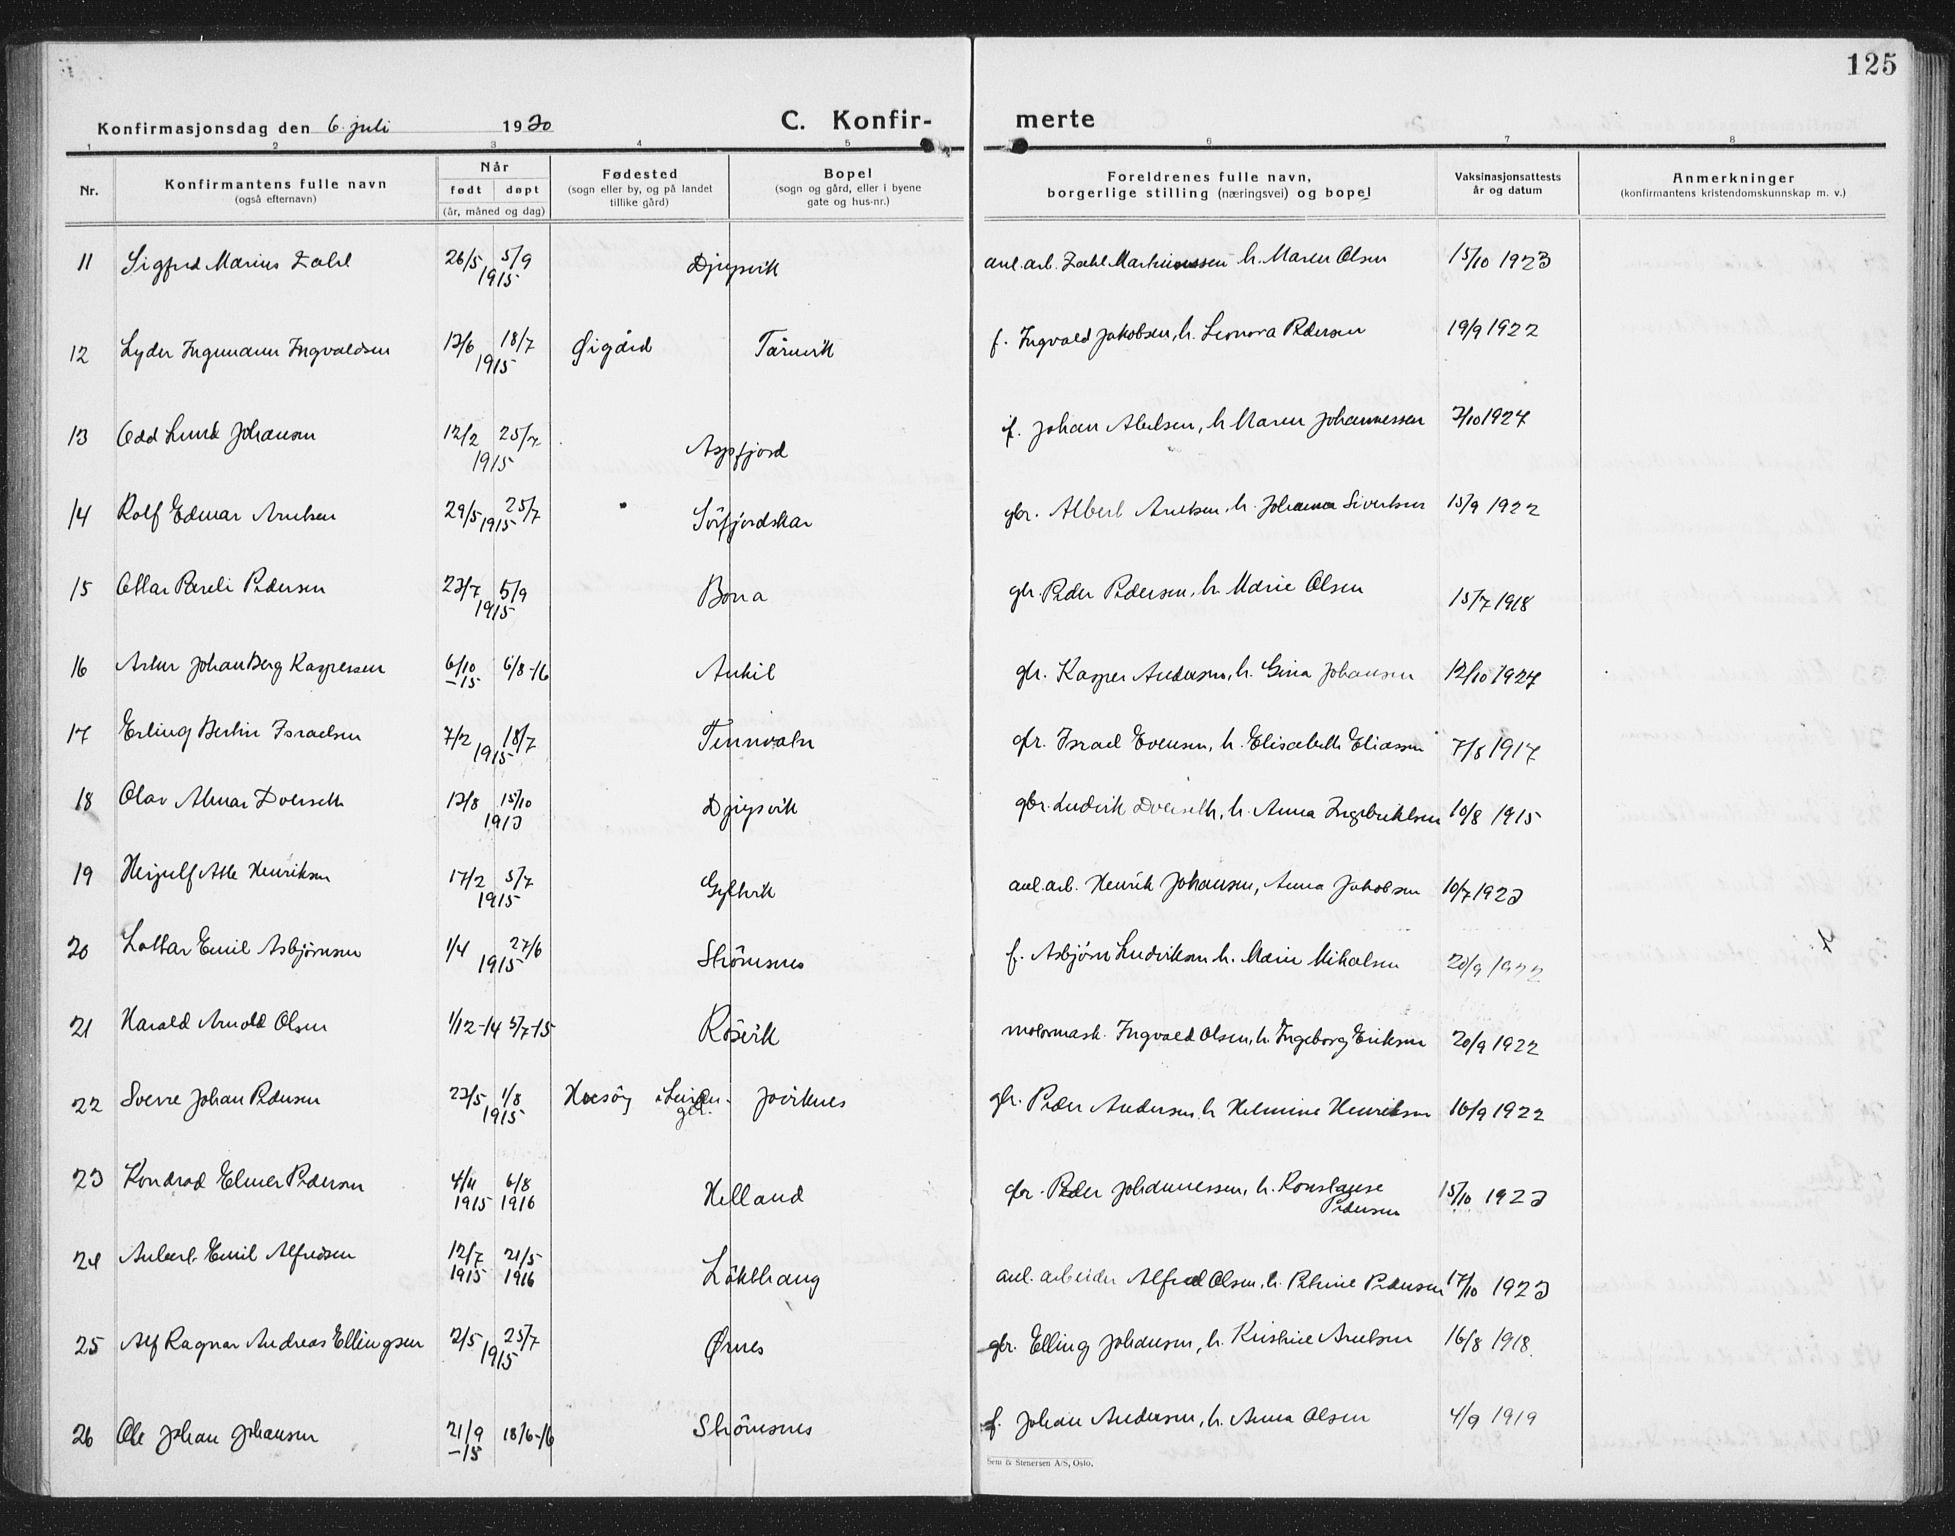 125
Konfirmasjonsdag den 6. juli 1930 C. Konfir- merte
1 2 3 4 5 6 7 8
Nr. Konfirmantens fulle navn (også efternavn) Når født døpt (år, måned og dag) Fødested (sogn eller by, og på landet tillike gård) Bopel (sogn og gård, eller i byene gate og hus-nr.) Foreldrenes fulle navn, borgerlige stilling (næringsvei) og bopel Vaksinasjonsattests år og datum Anmerkninger (konfirmantens kristendomskunnskap m. v.)
11 Sigfred Marius Zahl 26/5 5/9 1915 Djupvik anl. arb. Zahl Martinussen h. Maren Olsen 15/10 1923
12 Lyder Ingemann Ingvaldsen 13/6 18/7 1915 Øigård Tårnvik f. Ingvald Jakobsen, h. Leonora Pedersen 19/9 1922
13 Odd Lund Johansen 12/2 25/7 1915 Aspfjord f. Johan Abelsen, h Maren Johannessen 7/10 1927
14 Rolf Edmar Arntsen 29/5 25/7 1915 Sörfjordskar gbr. Albert Arntsen, h. Johanna Sivertsen 15/9 1922
15 Ottar Pareli Pedersen 23/7 5/9 1915 Bona gbr. Peder Pedersen, h. Marie Olsen 15/7 1918
16 Artur Johan Berg Kaspersen 6/10 -15 6/8-16 Ankil gbr. Kasper Andersen, h. Gina Johansen 12/10 1927
17 Erling Bertin Israelsen 7/2 18/7 1915 Tennvatn gbr. Israel Evensen, h. Elisabeth Eliassen 7/8 1917
18 Olav Almar Dverseth 13/8 15/10 1913 Djupsvik gbr. Ludvik Dverseth, h. Anna Ingebriktsen 10/8 1915
19 Herjulf Atle Henriksen 17/2 5/7 1915 Gyltvik anl. arb. Henrik Johansen, Anna Jakobsen 10/7 1923
20 Lottar Emil Asbjørnsen 1/4 27/6 1915 Strömsnes f. Asbjørn Ludviksen h. Marie Mikalsen 20/9 1922
21 Harald Arnold Olsen 1/12-14 5/7-15 Rösvik motormask. Ingvald Olsen, h. Ingeborg Eriksen 20/9 1922
22 Sverre Johan Pedersen 23/5 1/8 1915 Joviknes gbr. Peder Andersen, h Helmine Henriksen 16/9 1922
23 Kondrad Elmer Pedersen 4/11 1915 6/8 1916 Helland gbr. Peder Johannessen, h. Konstanse Pedersen 15/10 1923
24 Anbert Emil Alfredsen 12/7 1915 21/5 1916 Lökthaug anl. arbeider Alfred Olsen, h. Petrine Pedersen 17/10 1923
25 Alf Ragnar Andreas Ellingsen 2/5 25/7 1915 Ørnes gbr. Elling Johansen, h. Kristine Arntsen 16/8 1918.
26 Ole Johan Johansen 21/9 -15 18/6-16 Strömsnes f. Johan Andersen, h. Anna Olsen 4/9 1919
Sem & Stenersen A/S, Oslo.